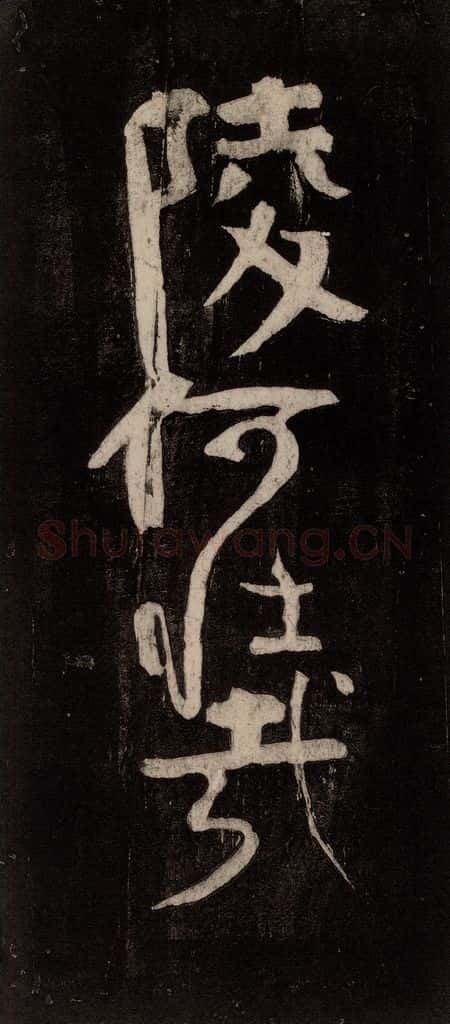 陵何壮哉
Shufawang.CN